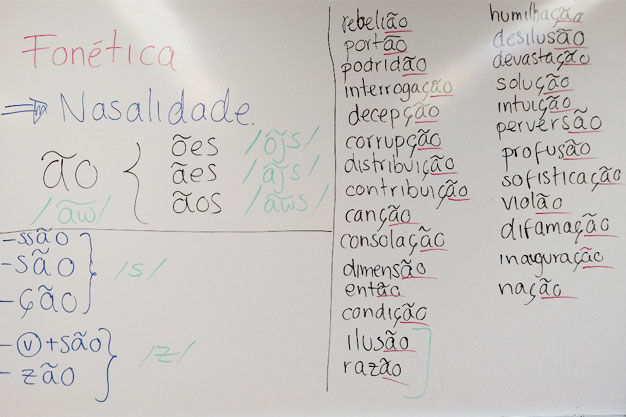 Fonética
⇒ Nasalidade.
ão { ões /õjs/
ães /ãjs/
ãos /ãws/
/ãw/
-ssão
-são
-ção
/s/
-ⓥ+são
-zão
/z/
rebelião
portão
podridão
interrogação
decepção
corrupção
distribuição
contribuição
canção
consolação
dimensão
então
condição
ilusão
razão
humilhação
desilusão
devastação
solução
intuição
perversão
profusão
sofisticação
violão
difamação
inauguração
nação